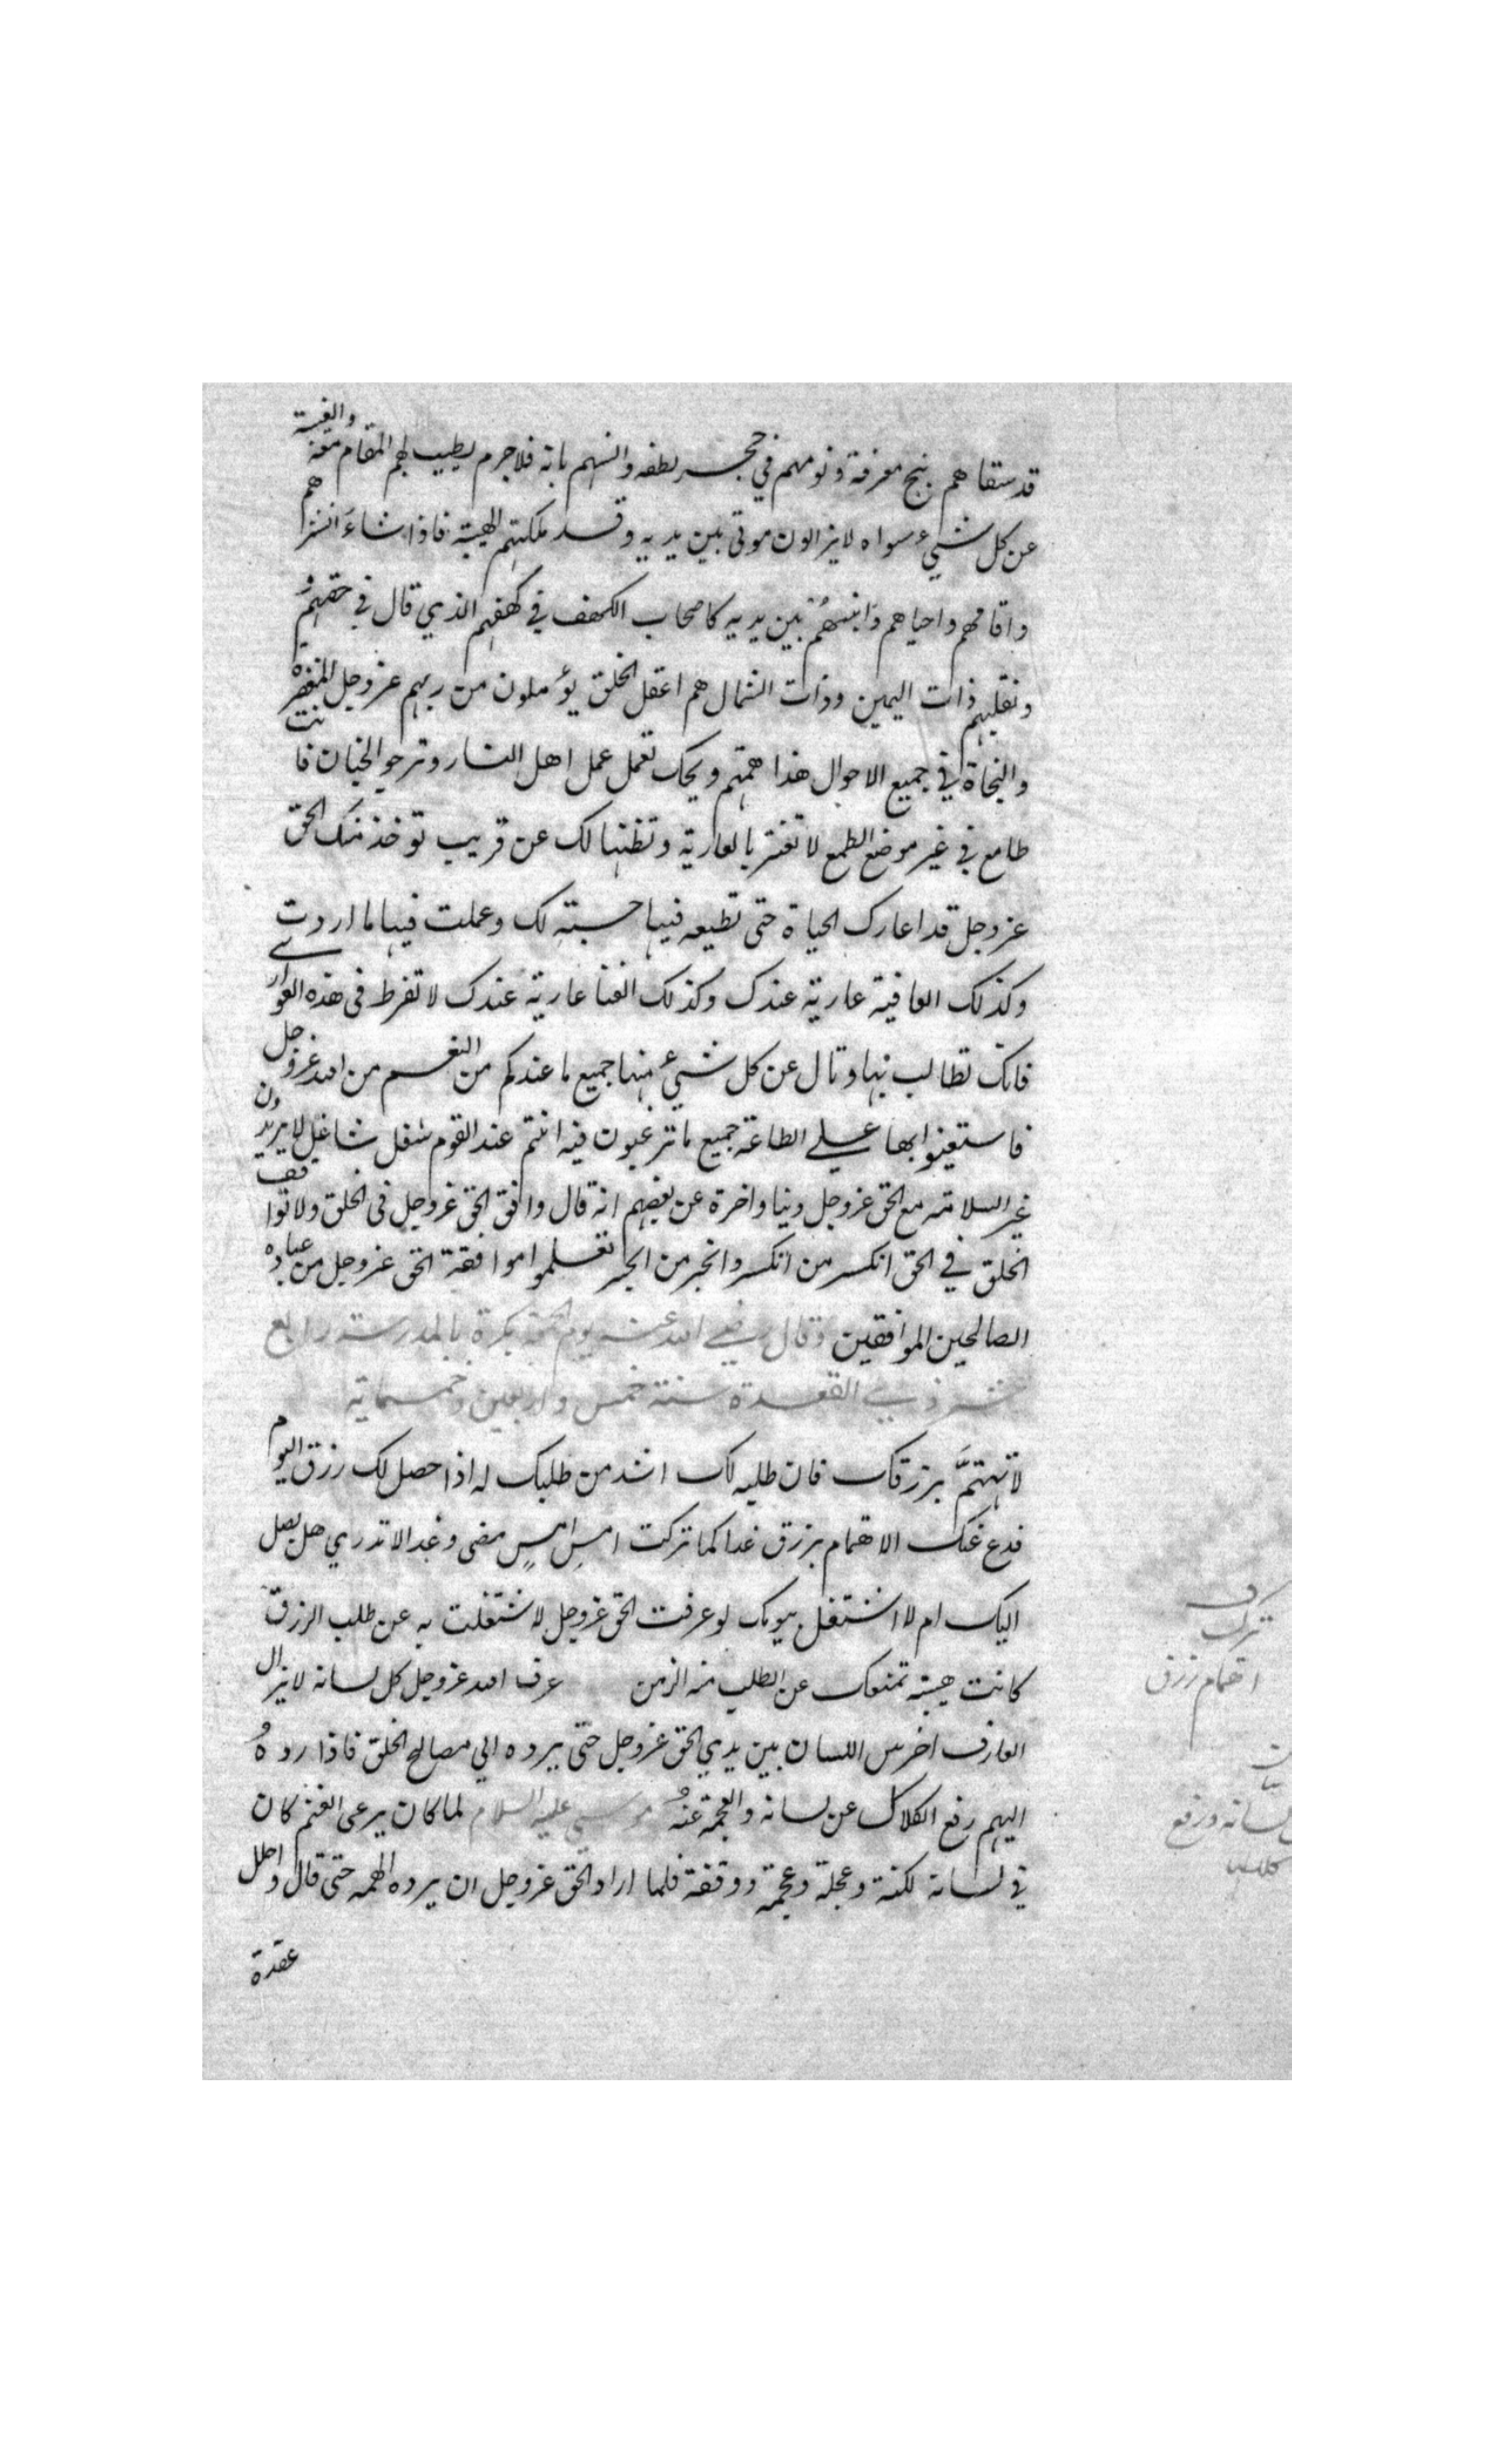 قد سقاهم بنج معرفة ونومهم في حجر لطفه وانسهم بانه فلا جرم يطيب لهم المقام معه والغيبة
عن كل شيء سواه لايزالون موتى بين يديه وقد ملكتهم الهيبة فاذا شاء انشرهم
واقامهم واحياهم وانبههم بين يديه كاصحاب الكهف في كهفهم الذي قال في حقهم و
ونقلبهم ذات اليمين وذات الشمال هم اعقل الخلق يؤملون من ربهم عزوجل المغفرة
والنجاة في جميع الاحوال هذا همتهم ويحك تعمل عمل اهل النار وترجو الجنان فانت
طامع في غير موضع الطمع لا تغتر بالعارية وتظنها لك عن قريب توخذ منك الحق
عزوجل قد اعارك الحياة حتى تطيعه فيها حسبته لك وعملت فيها ما اردت
وكذلك العافية عارية عندك وكذلك الغنا عارية عندك لا تفرط في هذه العواري
فانك تطالب بها وتسال عن كل شيء منها جميع ما عندكم من النعم من الله عزوجل
فاستعينوا بها علي الطاعة جميع ما ترغبون فيه انتم عند القوم شغل شاغل لا يريدون
غير السلامة مع الحق عزوجل دنيا واخرة عن بعضهم انه قال وافق الحق عزوجل في الخلق ولا توافق
الخلق في الحق انكسر من انكسر وانجبر من انجبر تعلموا موافقة الحق عزوجل من عباده
الصالحين الموافقين وقال رضي الله عنه يوم الجمعة بكرة بالمدرسة رابع
عشر ذي القعدة سنة خمس واربعين وخمسماية
لا تهتمَّ برزقك فان طلبه لك اشد من طلبك له اذا حصل لك رزق اليوم
فدع عنك الاهتمام برزق غدا كما تركت امس امس مضى وغدا لا تدري هل يصل
اليك ام لا اشتغل بيومك لو عرفت الحق عزوجل لاشتغلت به عن طلب الرزق
كانت هيبته تمنعك عن الطلب منه الزمن عرف الله عزوجل كل لسانه لا يزال
العارف اخرس اللسان بين يدي الحق عزوجل حتى يرده الي مصالح الخلق فاذا رده
اليهم رفع الكلال عن لسانه والعجمة عنه موسي عليه السلام لما كان يرعى الغنم كان
في لسانه لكنة وعجلة وعجمة ووقفة فلما اراد الحق عزوجل ان يرده الهمه حتى قال واحلل
عقدة
ترك
اهتمام رزق
لسانه ورفع